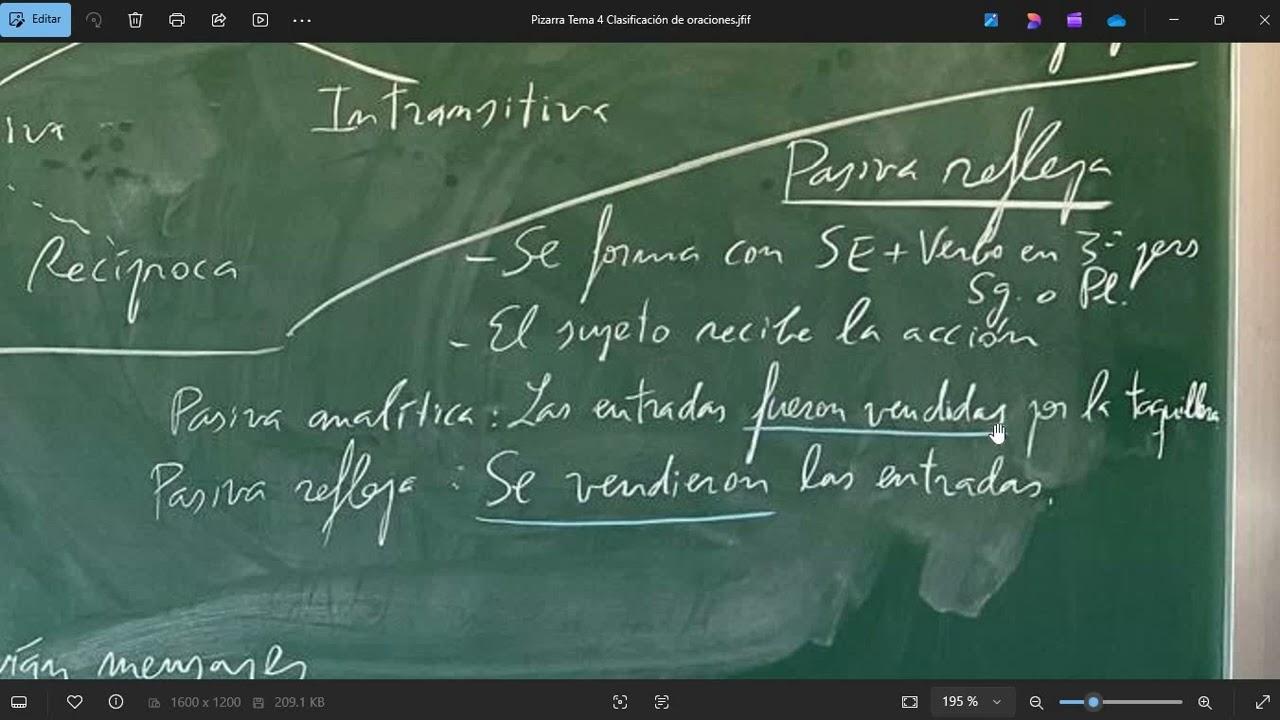 Editar
Pizarra Tema 4 Clasificación de oraciones.jfif
Intransitiva
iva
Pasiva refleja
Recíproca
- Se forma con SE + Verbo en 3ª pers
Sg. o Pl.
- El sujeto recibe la acción
Pasiva analítica: Las entradas fueron vendidas por la taquillera
Pasiva refleja: Se vendieron las entradas.
mensajes
1600 x 1200
209.1 KB
195 %